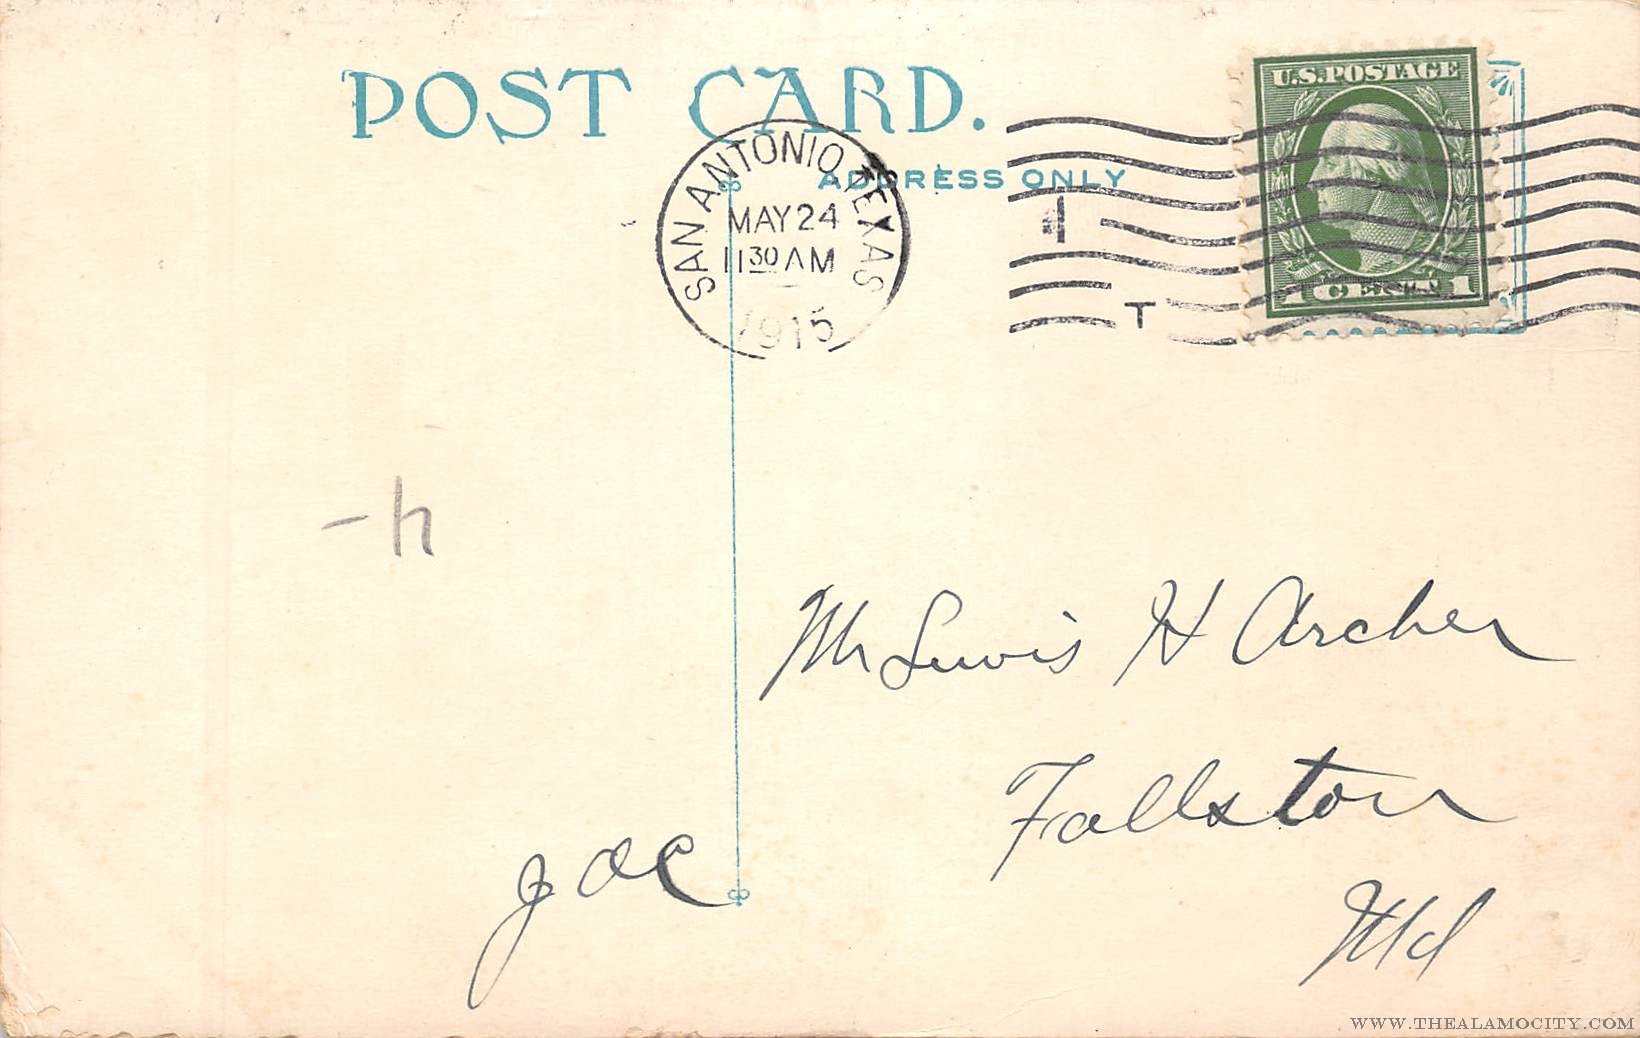 POST CARD.
ADDRESS ONLY
SAN ANTONIO, TEXAS
MAY 24
11 30 AM
1915
1
T
U.S. POSTAGE
1 CENT 1
Mr Lewis H Archer
Fallston
Md
WWW.THEALAMOCITY.COM